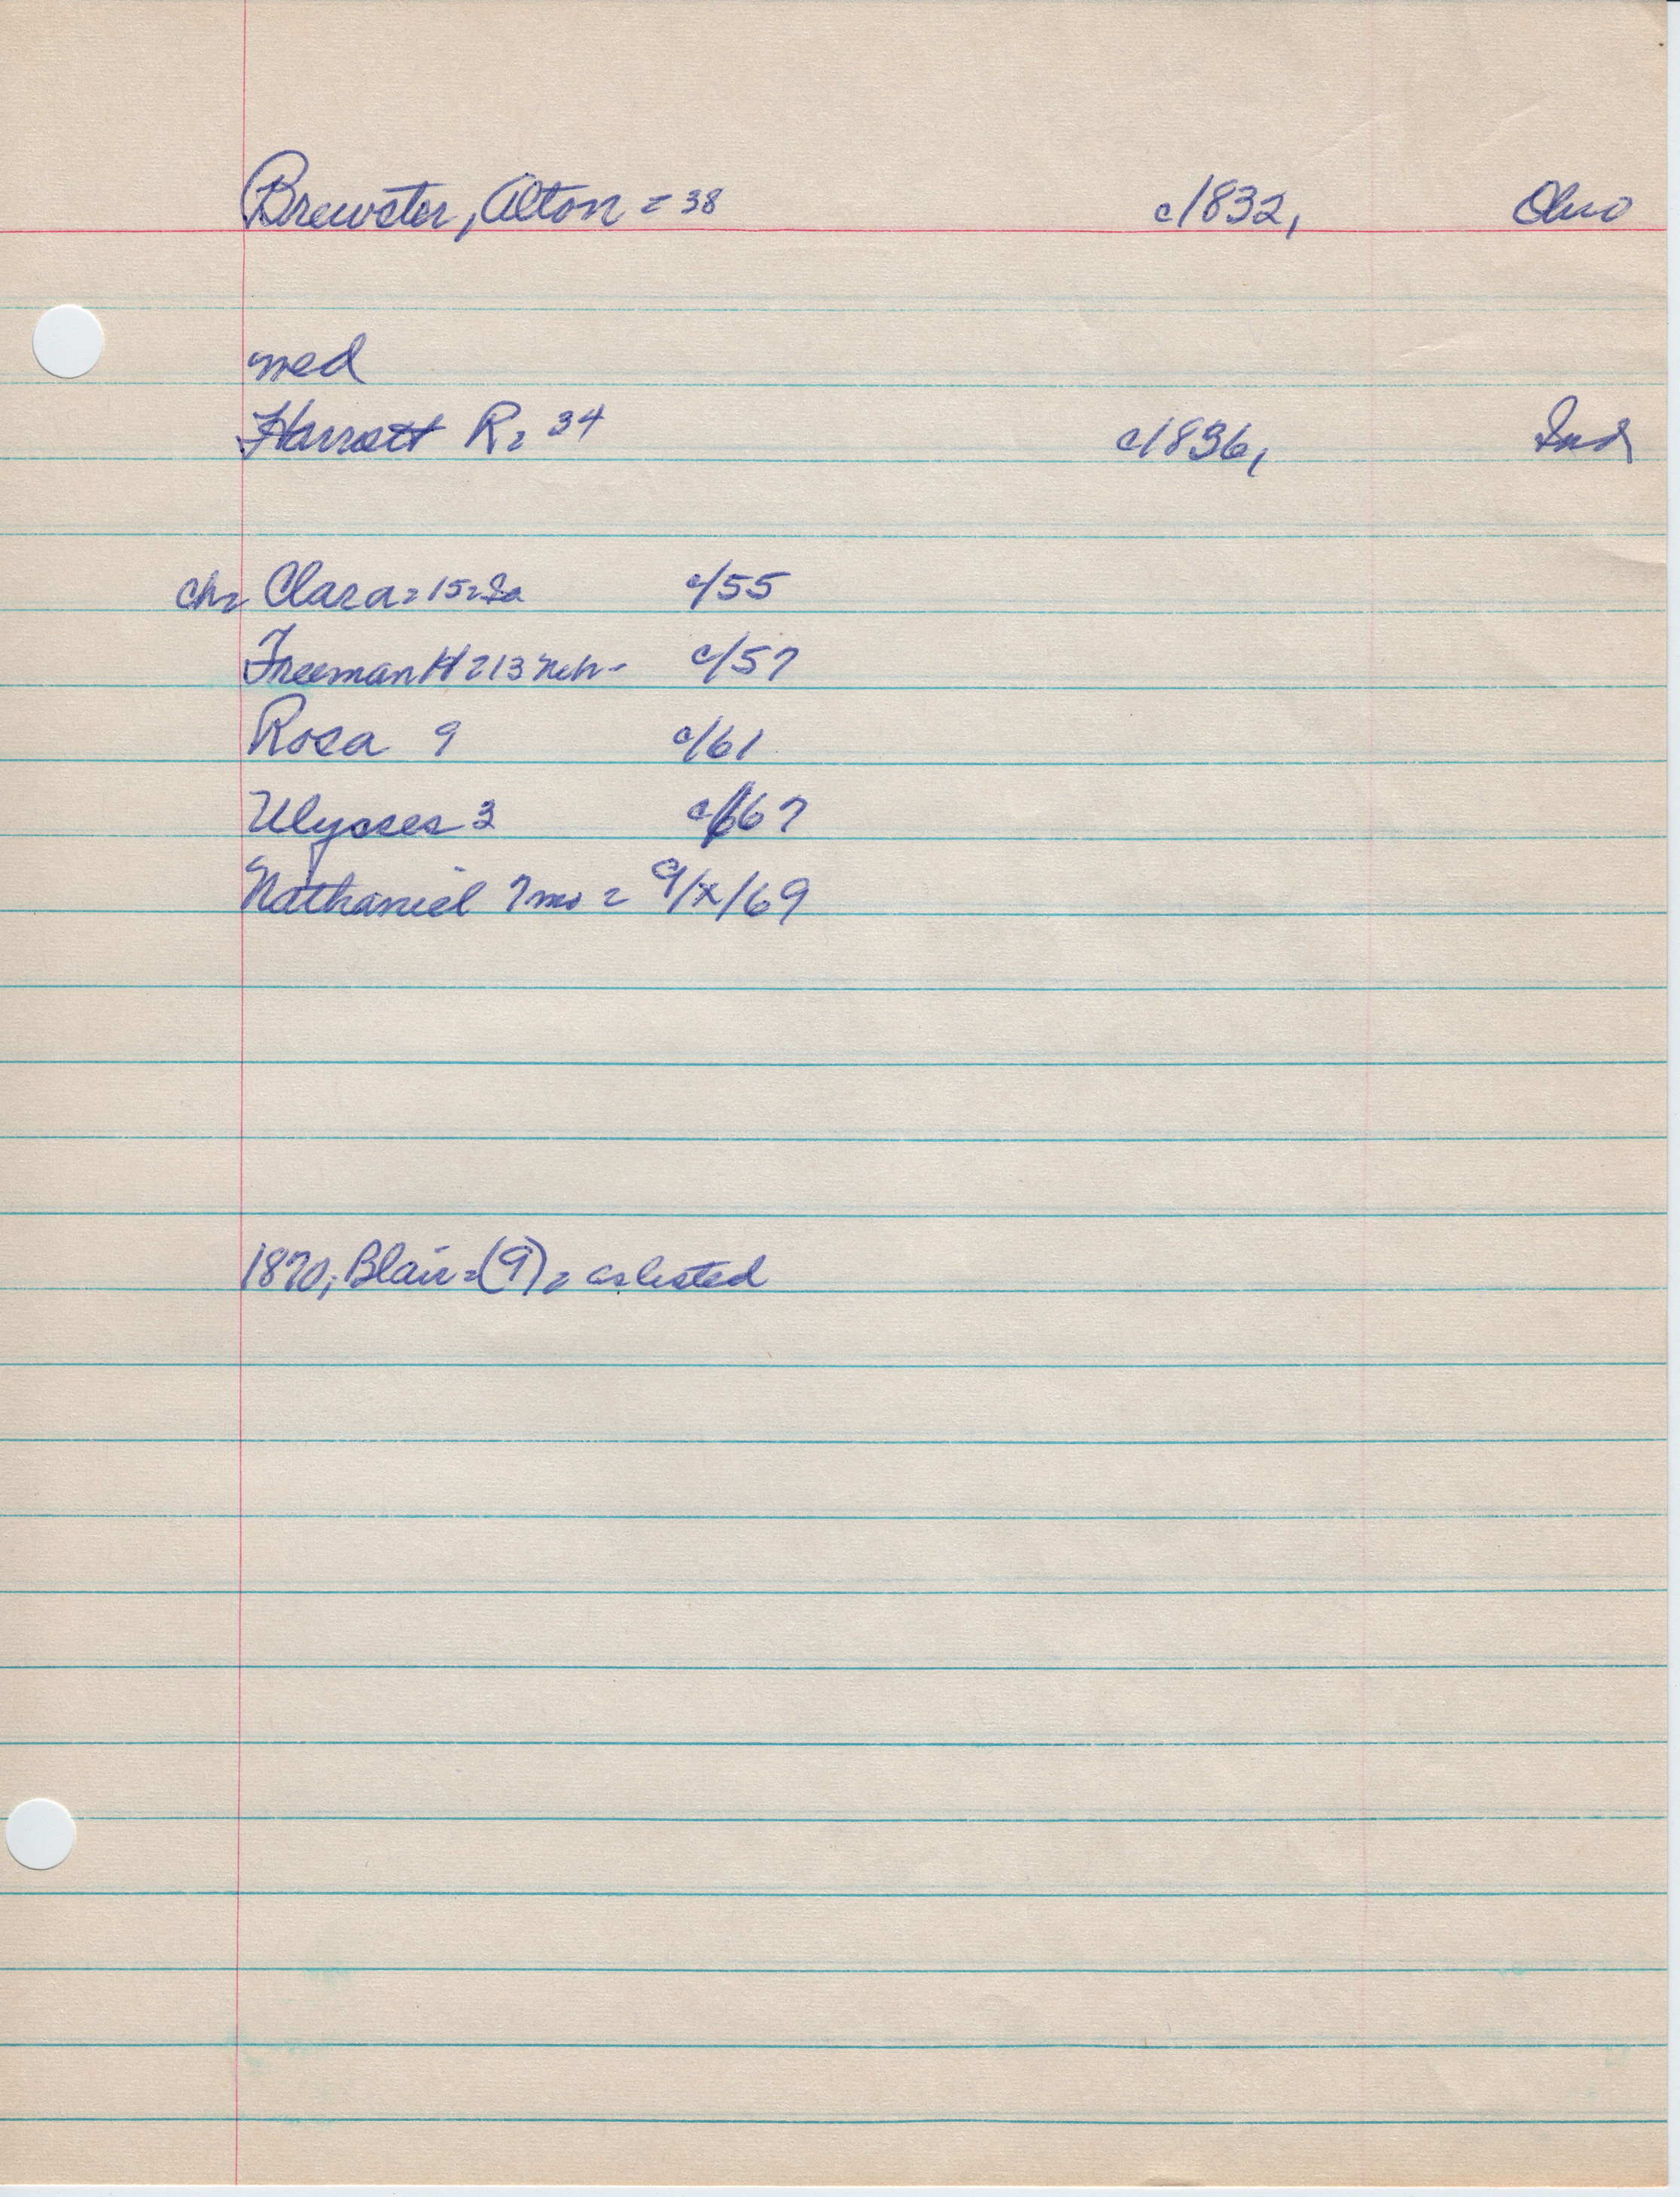 Brewster, Alton = 38 c/1832, Ohio
med
Harriett R = 34 c/1836, Ind
ch = Clara = 15 = Ia c/55
Freeman H = 13 Neb - c/57
Rosa 9 c/61
Ulysses 3 c/67
Nathaniel 7 mo = 9/x/69
1870; Blair = (9) = as listed